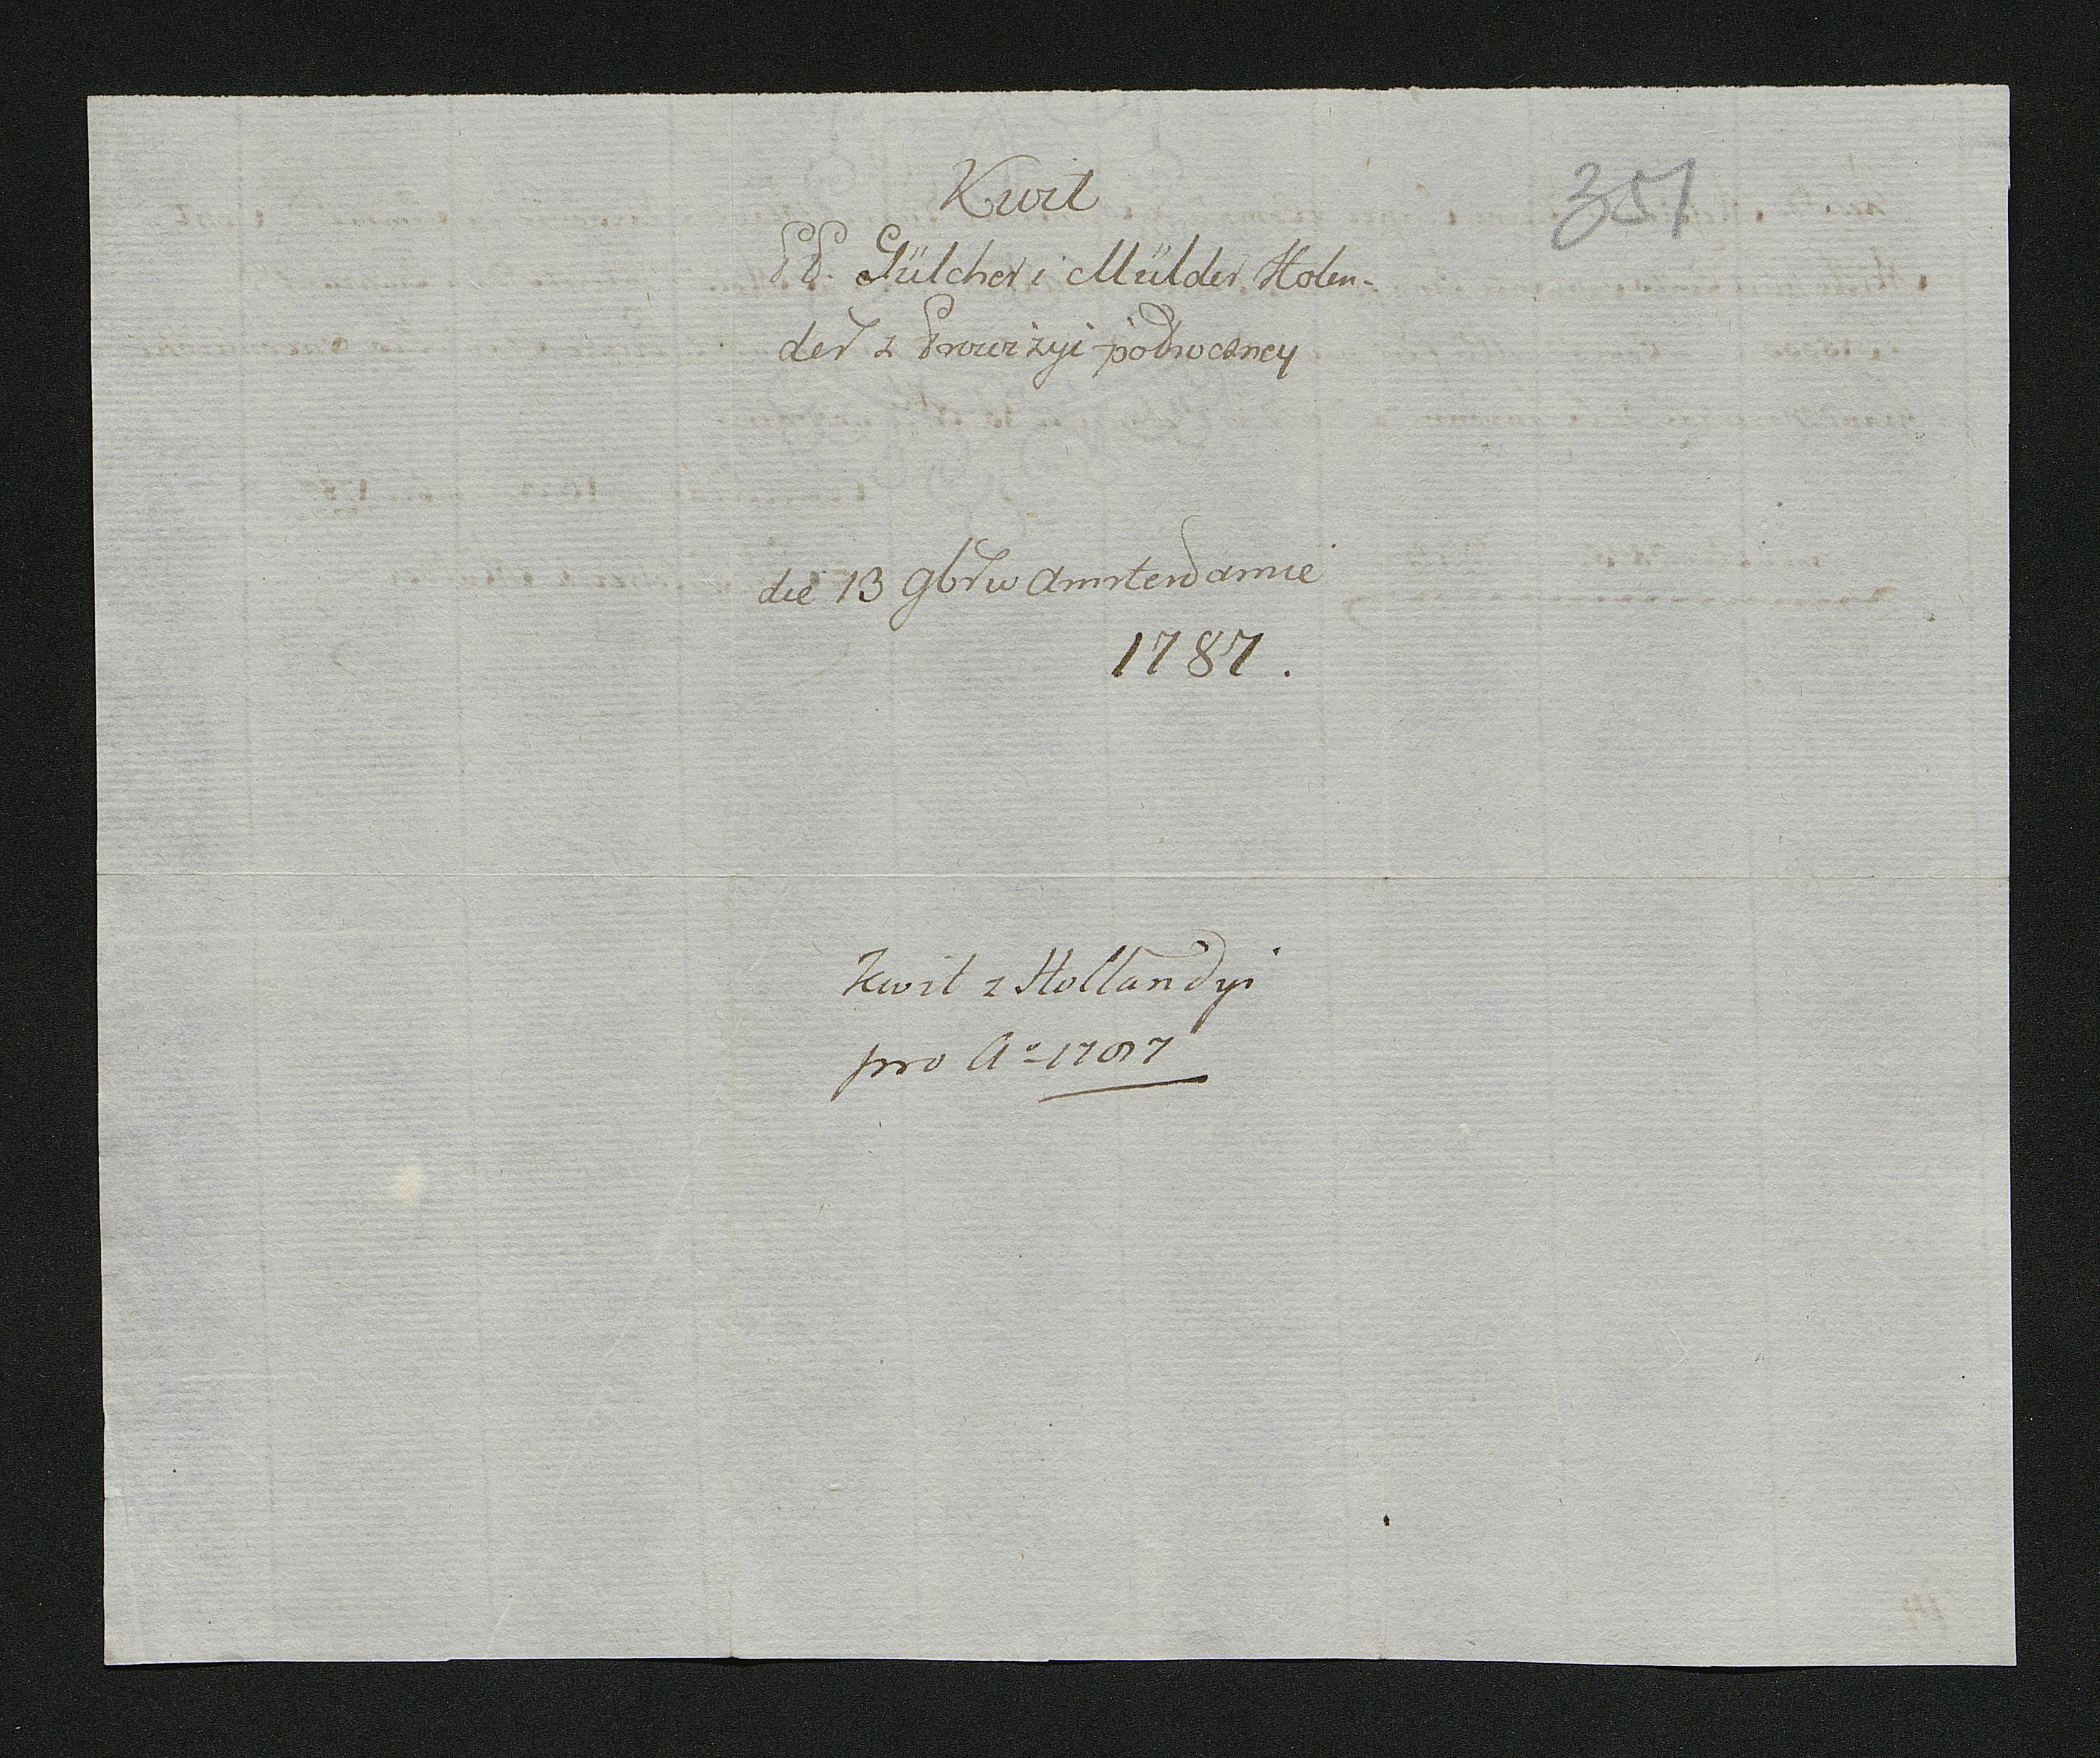 Kwit
351
PP. Gülcher i Mülder Holen-
der z Prowizyi połroczney
die 13 9br w Amsterdamie
1787.
Kwit z Hollandyi
pro Aº 1787